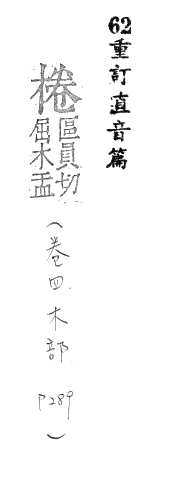 62重訂直音篇
棬區員切屈木盂
（卷四木部 P289）